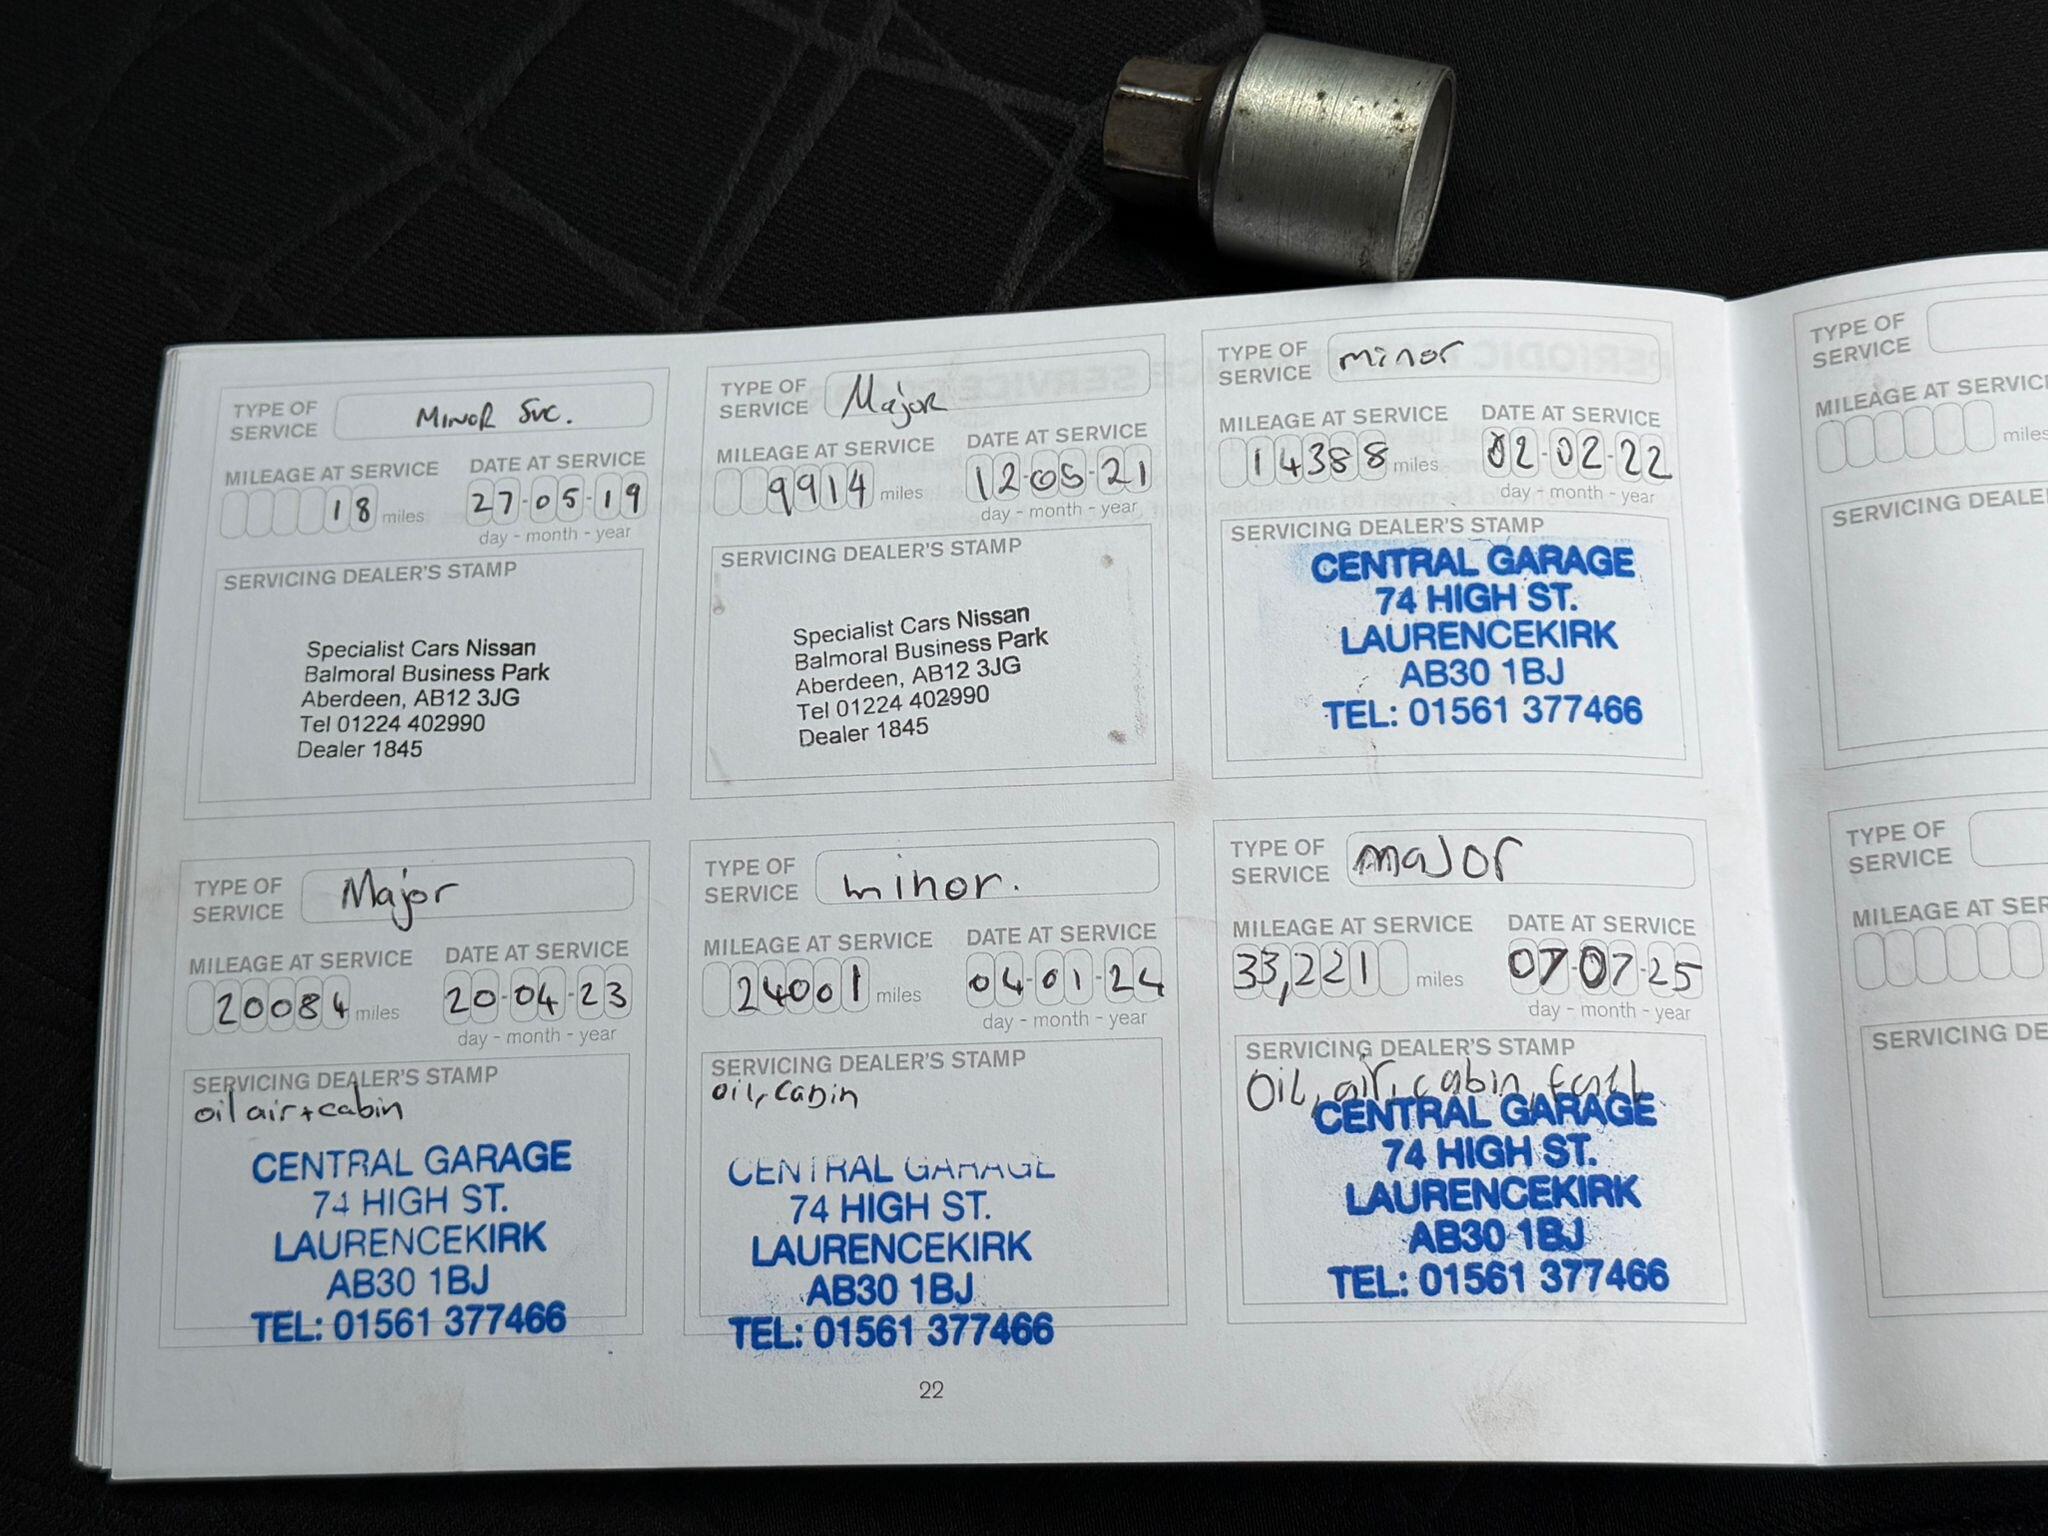 TYPE OF SERVICE MINOR Svc.
MILEAGE AT SERVICE DATE AT SERVICE
18 miles 27-05-19
day - month - year
SERVICING DEALER'S STAMP
Specialist Cars Nissan
Balmoral Business Park
Aberdeen, AB12 3JG
Tel 01224 402990
Dealer 1845
TYPE OF SERVICE Major
MILEAGE AT SERVICE DATE AT SERVICE
9914 miles 12-05-21
day - month - year
SERVICING DEALER'S STAMP
Specialist Cars Nissan
Balmoral Business Park
Aberdeen, AB12 3JG
Tel 01224 402990
Dealer 1845
TYPE OF SERVICE minor
MILEAGE AT SERVICE DATE AT SERVICE
14388 miles 02-02-22
day - month - year
SERVICING DEALER'S STAMP
CENTRAL GARAGE
74 HIGH ST.
LAURENCEKIRK
AB30 1BJ
TEL: 01561 377466
TYPE OF SERVICE Major
MILEAGE AT SERVICE DATE AT SERVICE
20084 miles 20-04-23
day - month - year
SERVICING DEALER'S STAMP
oil air + cabin
CENTRAL GARAGE
74 HIGH ST.
LAURENCEKIRK
AB30 1BJ
TEL: 01561 377466
TYPE OF SERVICE minor.
MILEAGE AT SERVICE DATE AT SERVICE
24001 miles 04-01-24
day - month - year
SERVICING DEALER'S STAMP
oil, cabin
CENTRAL GARAGE
74 HIGH ST.
LAURENCEKIRK
AB30 1BJ
TEL: 01561 377466
TYPE OF SERVICE major
MILEAGE AT SERVICE DATE AT SERVICE
33,221 miles 07-07-25
day - month - year
SERVICING DEALER'S STAMP
Oil, air, cabin,
CENTRAL GARAGE
74 HIGH ST.
LAURENCEKIRK
AB30 1BJ
TEL: 01561 377466
22
TYPE OF SERVICE
MILEAGE AT SERVIC
miles
SERVICING DEALE
TYPE OF SERVICE
MILEAGE AT SER
SERVICING DE